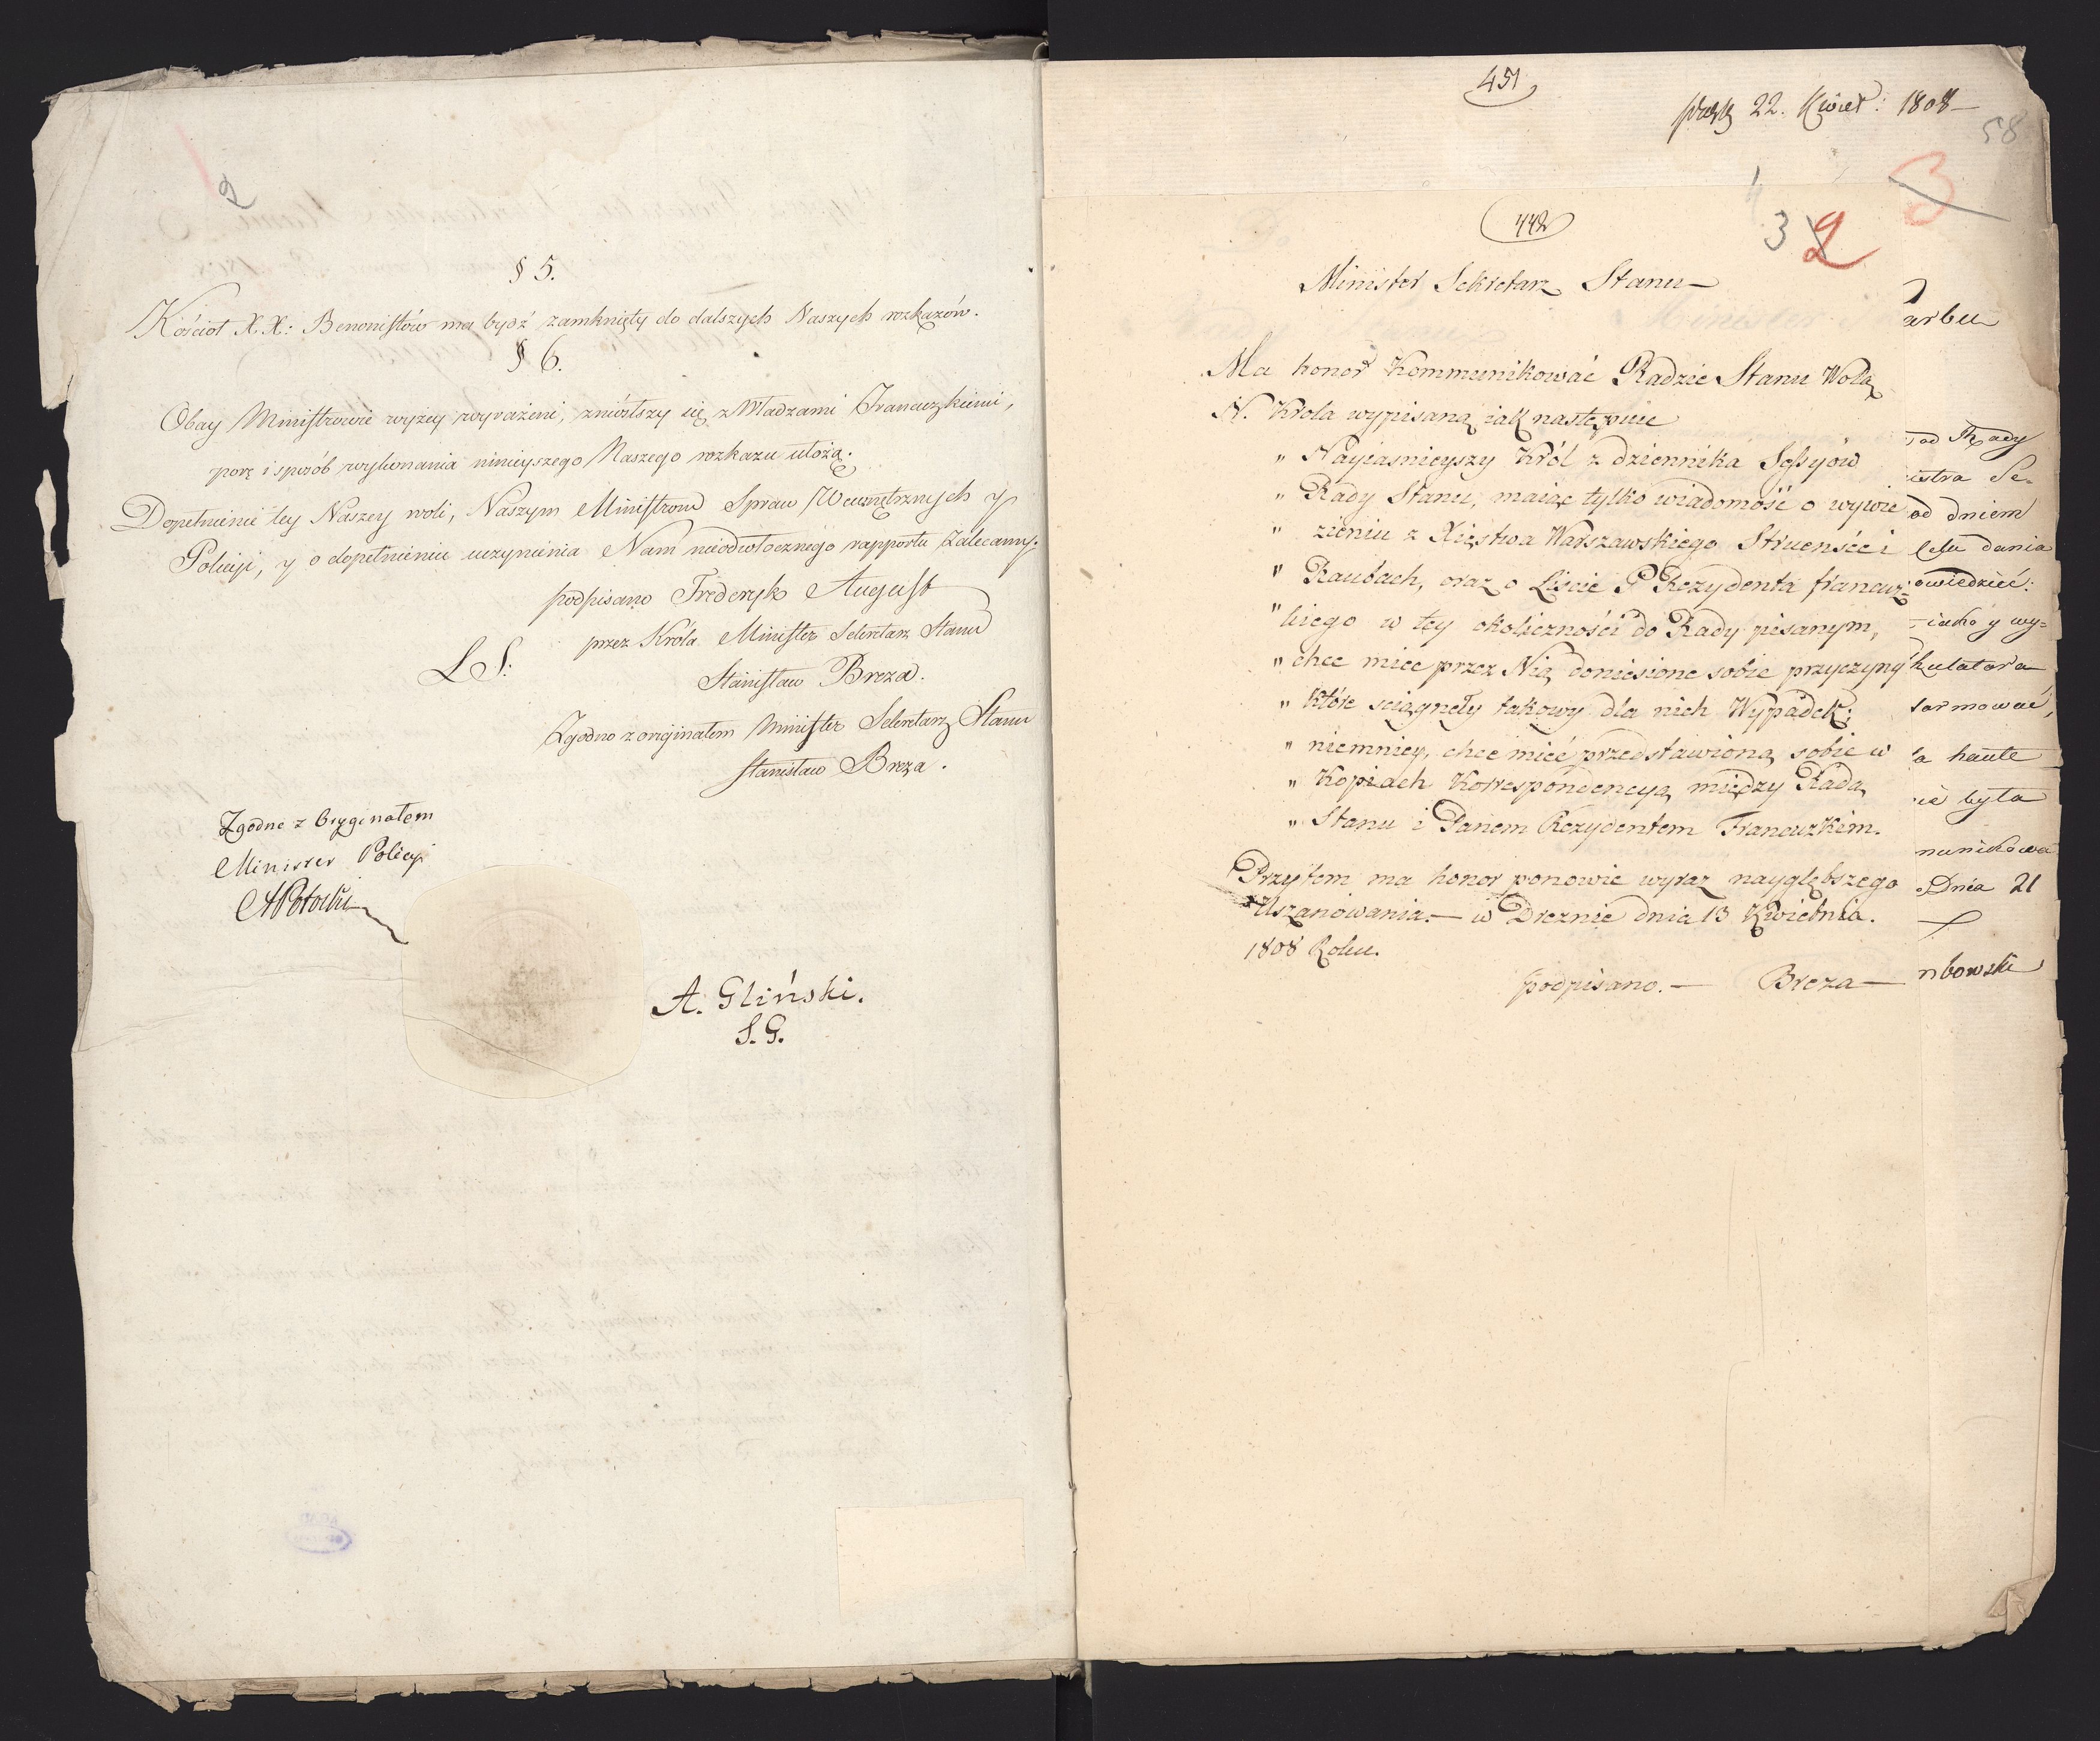 2
§ 5.
Kościoł X. X: Benonistów ma bydź zamknięty do dalszych Naszych rozkazów.
§ 6.
Obay Ministrowie wyżey wyrażeni, zniósłszy się z Władzami Francuzkiemi,
porę i sposób wykonania ninieyszego Naszego rozkazu ułożą.
Dopełnienie tey Naszey woli, Naszym Ministrom Spraw Wewnętrznych y
Policyi, y o dopełnieniu uczynienia Nam nieodwłocznego rapportu zalecamy.
podpisano Frederyk August
przez Króla Minister Sekretarz Stanu
L S:
Stanisław Breza.
Zgodno z originałem Minister Sekretarz Stanu
Stanisław Breza.
Zgodne z Oryginałem
Minister Policyi
APotocki
A. Gliński.
S. G.
451
22. Kwiet: 1808
58
3
442
3 2
Minister Sekretarz Stanu
Ma honor Kommunikować Radzie Stanu Wolą
N. Króla wypisaną iak następuie
„ Nayiasnieyszy Król z dziennika Sessyów
„ Rady Stanu, maiąc tylko wiadomość o wywie
„ zieniu z Xięstwa Warszawskiego Struensée i
„ Raubach, oraz o Liście P Rezydenta francuz-
„ kiego w tey okoliczności do Rady pisanym,
„ chce miec przez Nią doniesione sobie przyczyny
„ które sciągnęły takowy dla nich Wypadek;
„ niemniey, chce mieć przedstawioną sobie w
„ Kopiach Korrespondencyą między Radą
„ Stanu i Panem Rezydentem Francuzkim.
Przytem ma honor ponowic wyraz naygłębszego
Uszanowania. — w Dreznie dnia 13 Kwietnia.
1808 Roku.
podpisano. — Breza —
arbu
od Rady
istra Se-
od dniem
celu dania
owiedzieć:
iako y wy=
kutatora
formować,
a haute
ie była
munikowa
Dnia 21
bowski